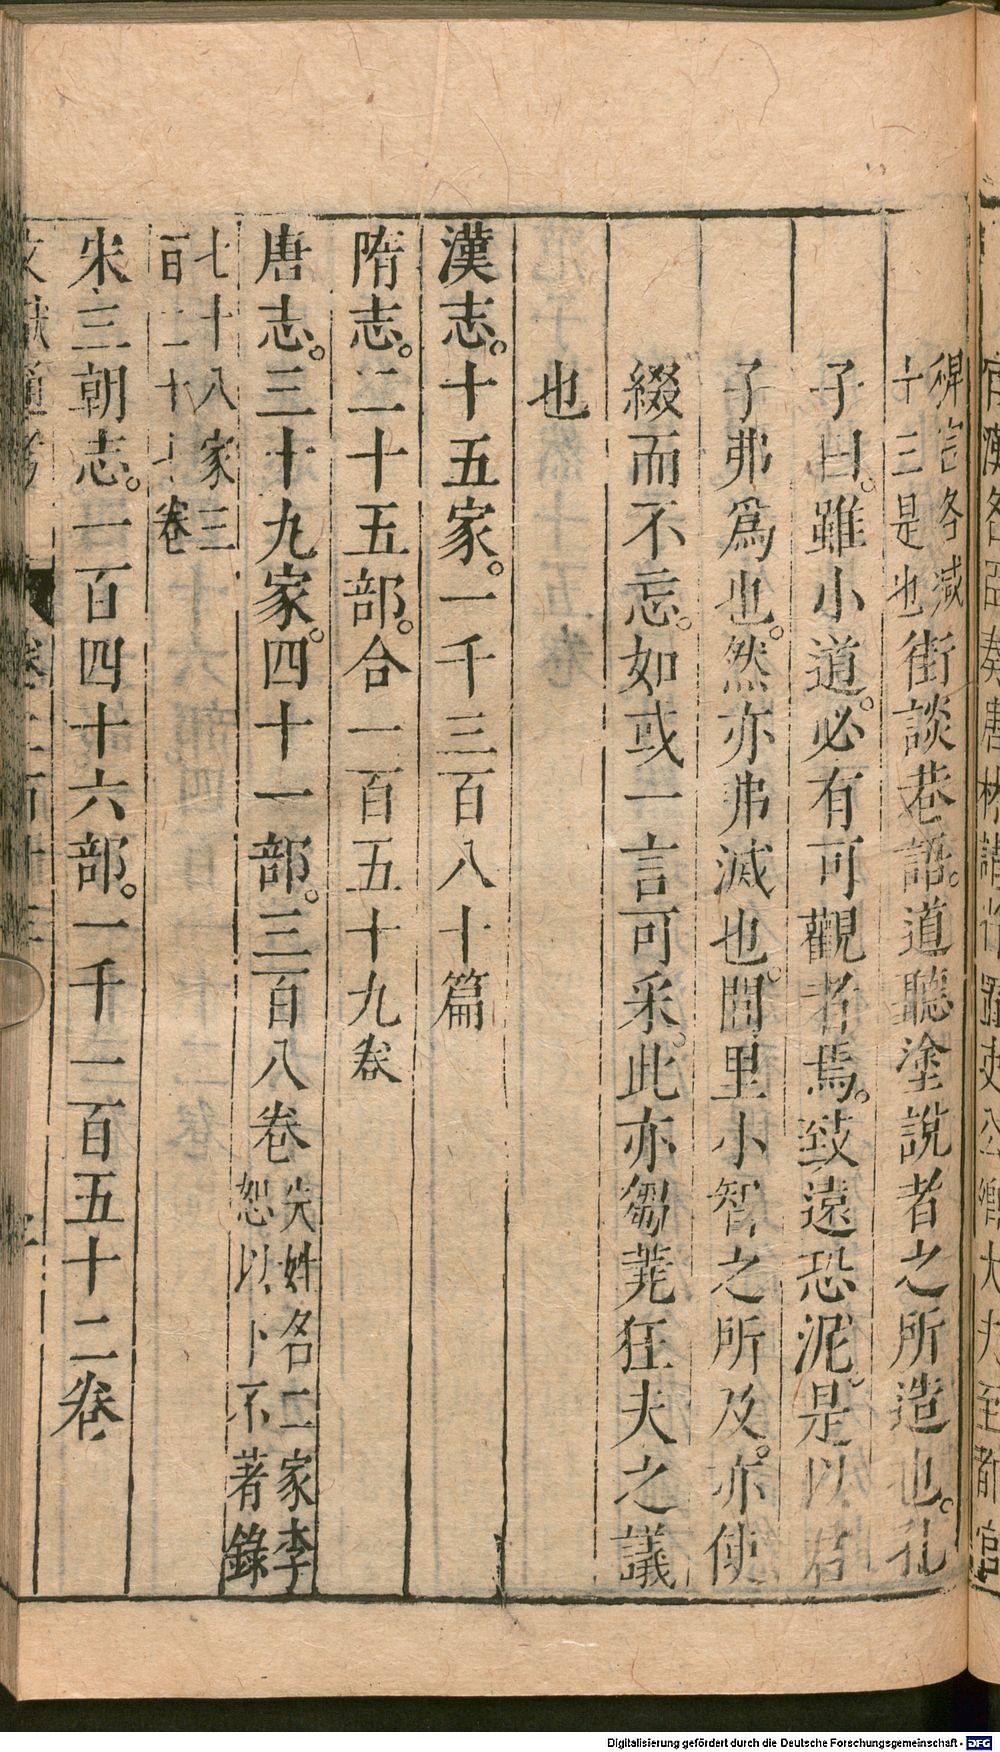 稗官各減
十三是也街談巷語。道聽塗說者之所造也。孔
子曰。雖小道。必有可觀者焉。致遠恐泥。是以君
子弗爲也。然亦弗滅也。閭里小智之所及。亦使
綴而不忘。如或一言可采。此亦芻蕘狂夫之議
也
漢志。十五家。一千三百八十篇
隋志。二十五部。合一百五十九卷
唐志。三十九家。四十一部。三百八卷失姓名二家李
恕以下不著錄
七十八家三
百二十七卷
宋三朝志。一百四十六部。一千二百五十二卷
Digitalisierung gefördert durch die Deutsche Forschungsgemeinschaft - DFG